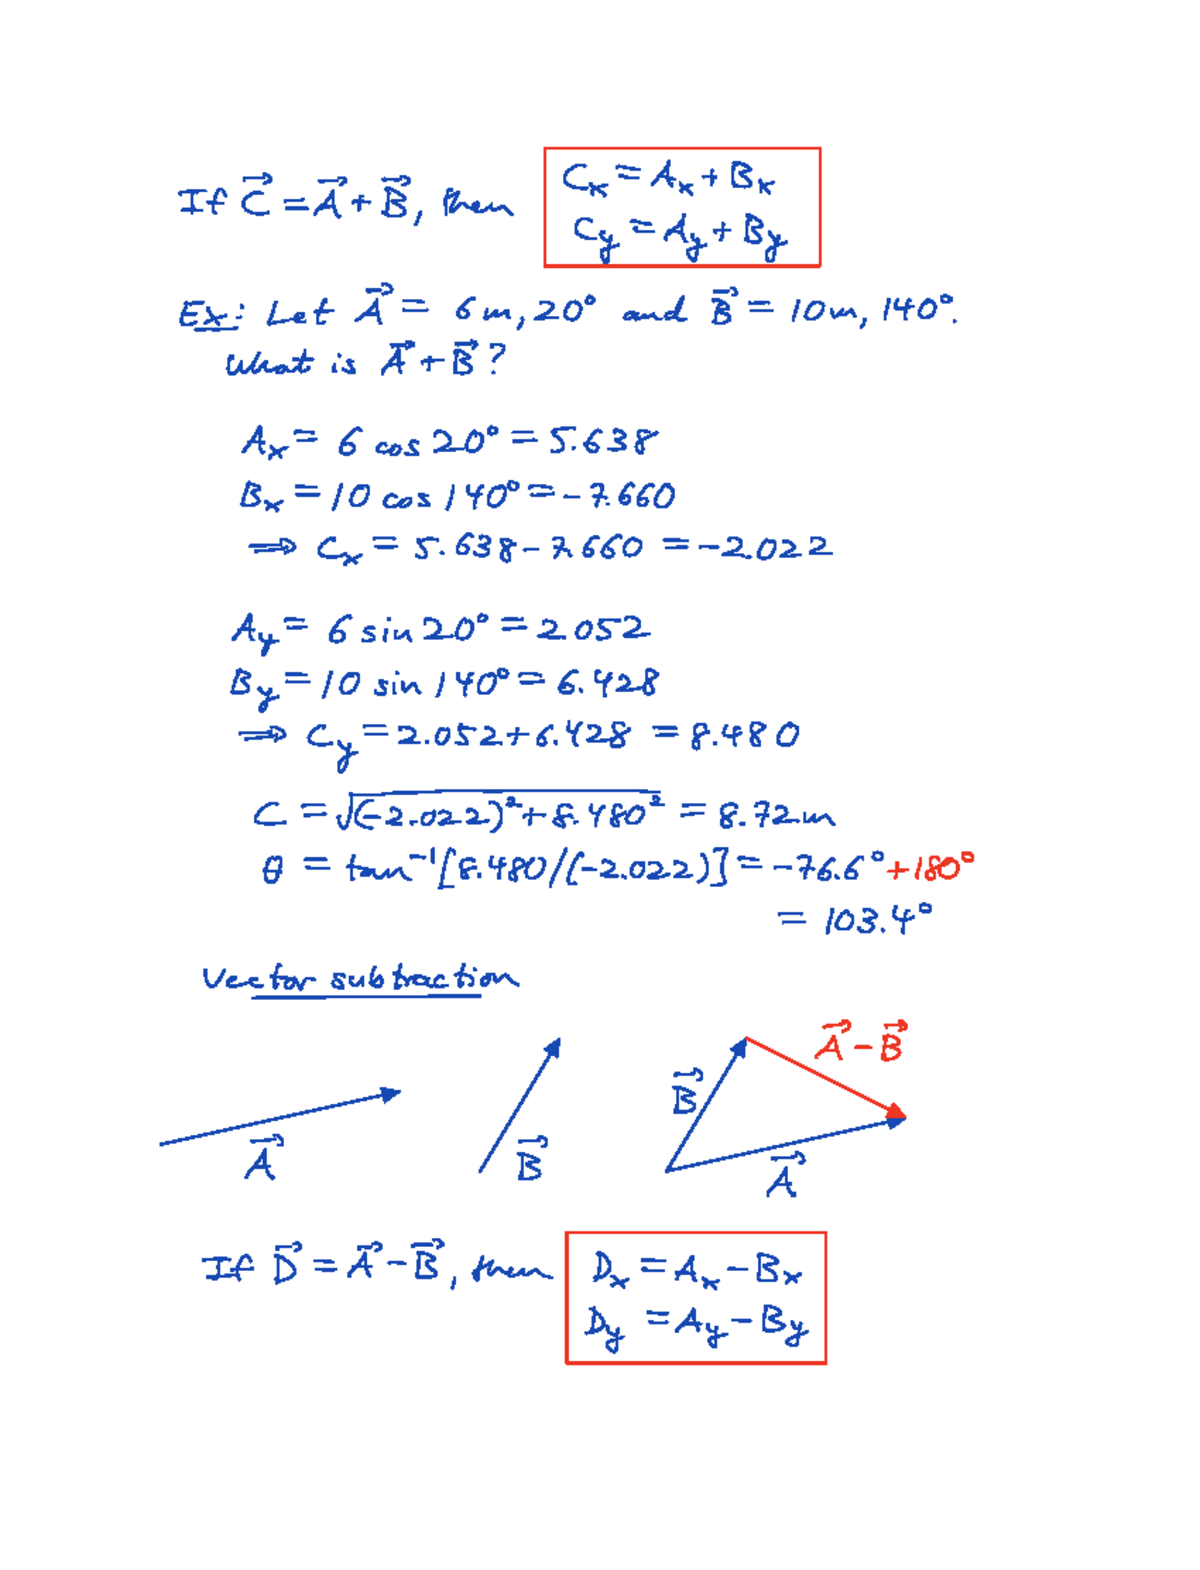 If C⃗ = A⃗ + B⃗, then
Cx = Ax + Bx
Cy = Ay + By
Ex: Let A⃗ = 6m, 20° and B⃗ = 10m, 140°.
What is A⃗ + B⃗?
Ax = 6 cos 20° = 5.638
Bx = 10 cos 140° = -7.660
⇒ Cx = 5.638 - 7.660 = -2.022
Ay = 6 sin 20° = 2.052
By = 10 sin 140° = 6.428
⇒ Cy = 2.052 + 6.428 = 8.480
C = √(-2.022)² + 8.480² = 8.72m
θ = tan⁻¹[8.480/(-2.022)] = -76.6° + 180°
= 103.4°
Vector subtraction
A⃗
B⃗
B⃗
A⃗ - B⃗
A⃗
If D⃗ = A⃗ - B⃗, then
Dx = Ax - Bx
Dy = Ay - By